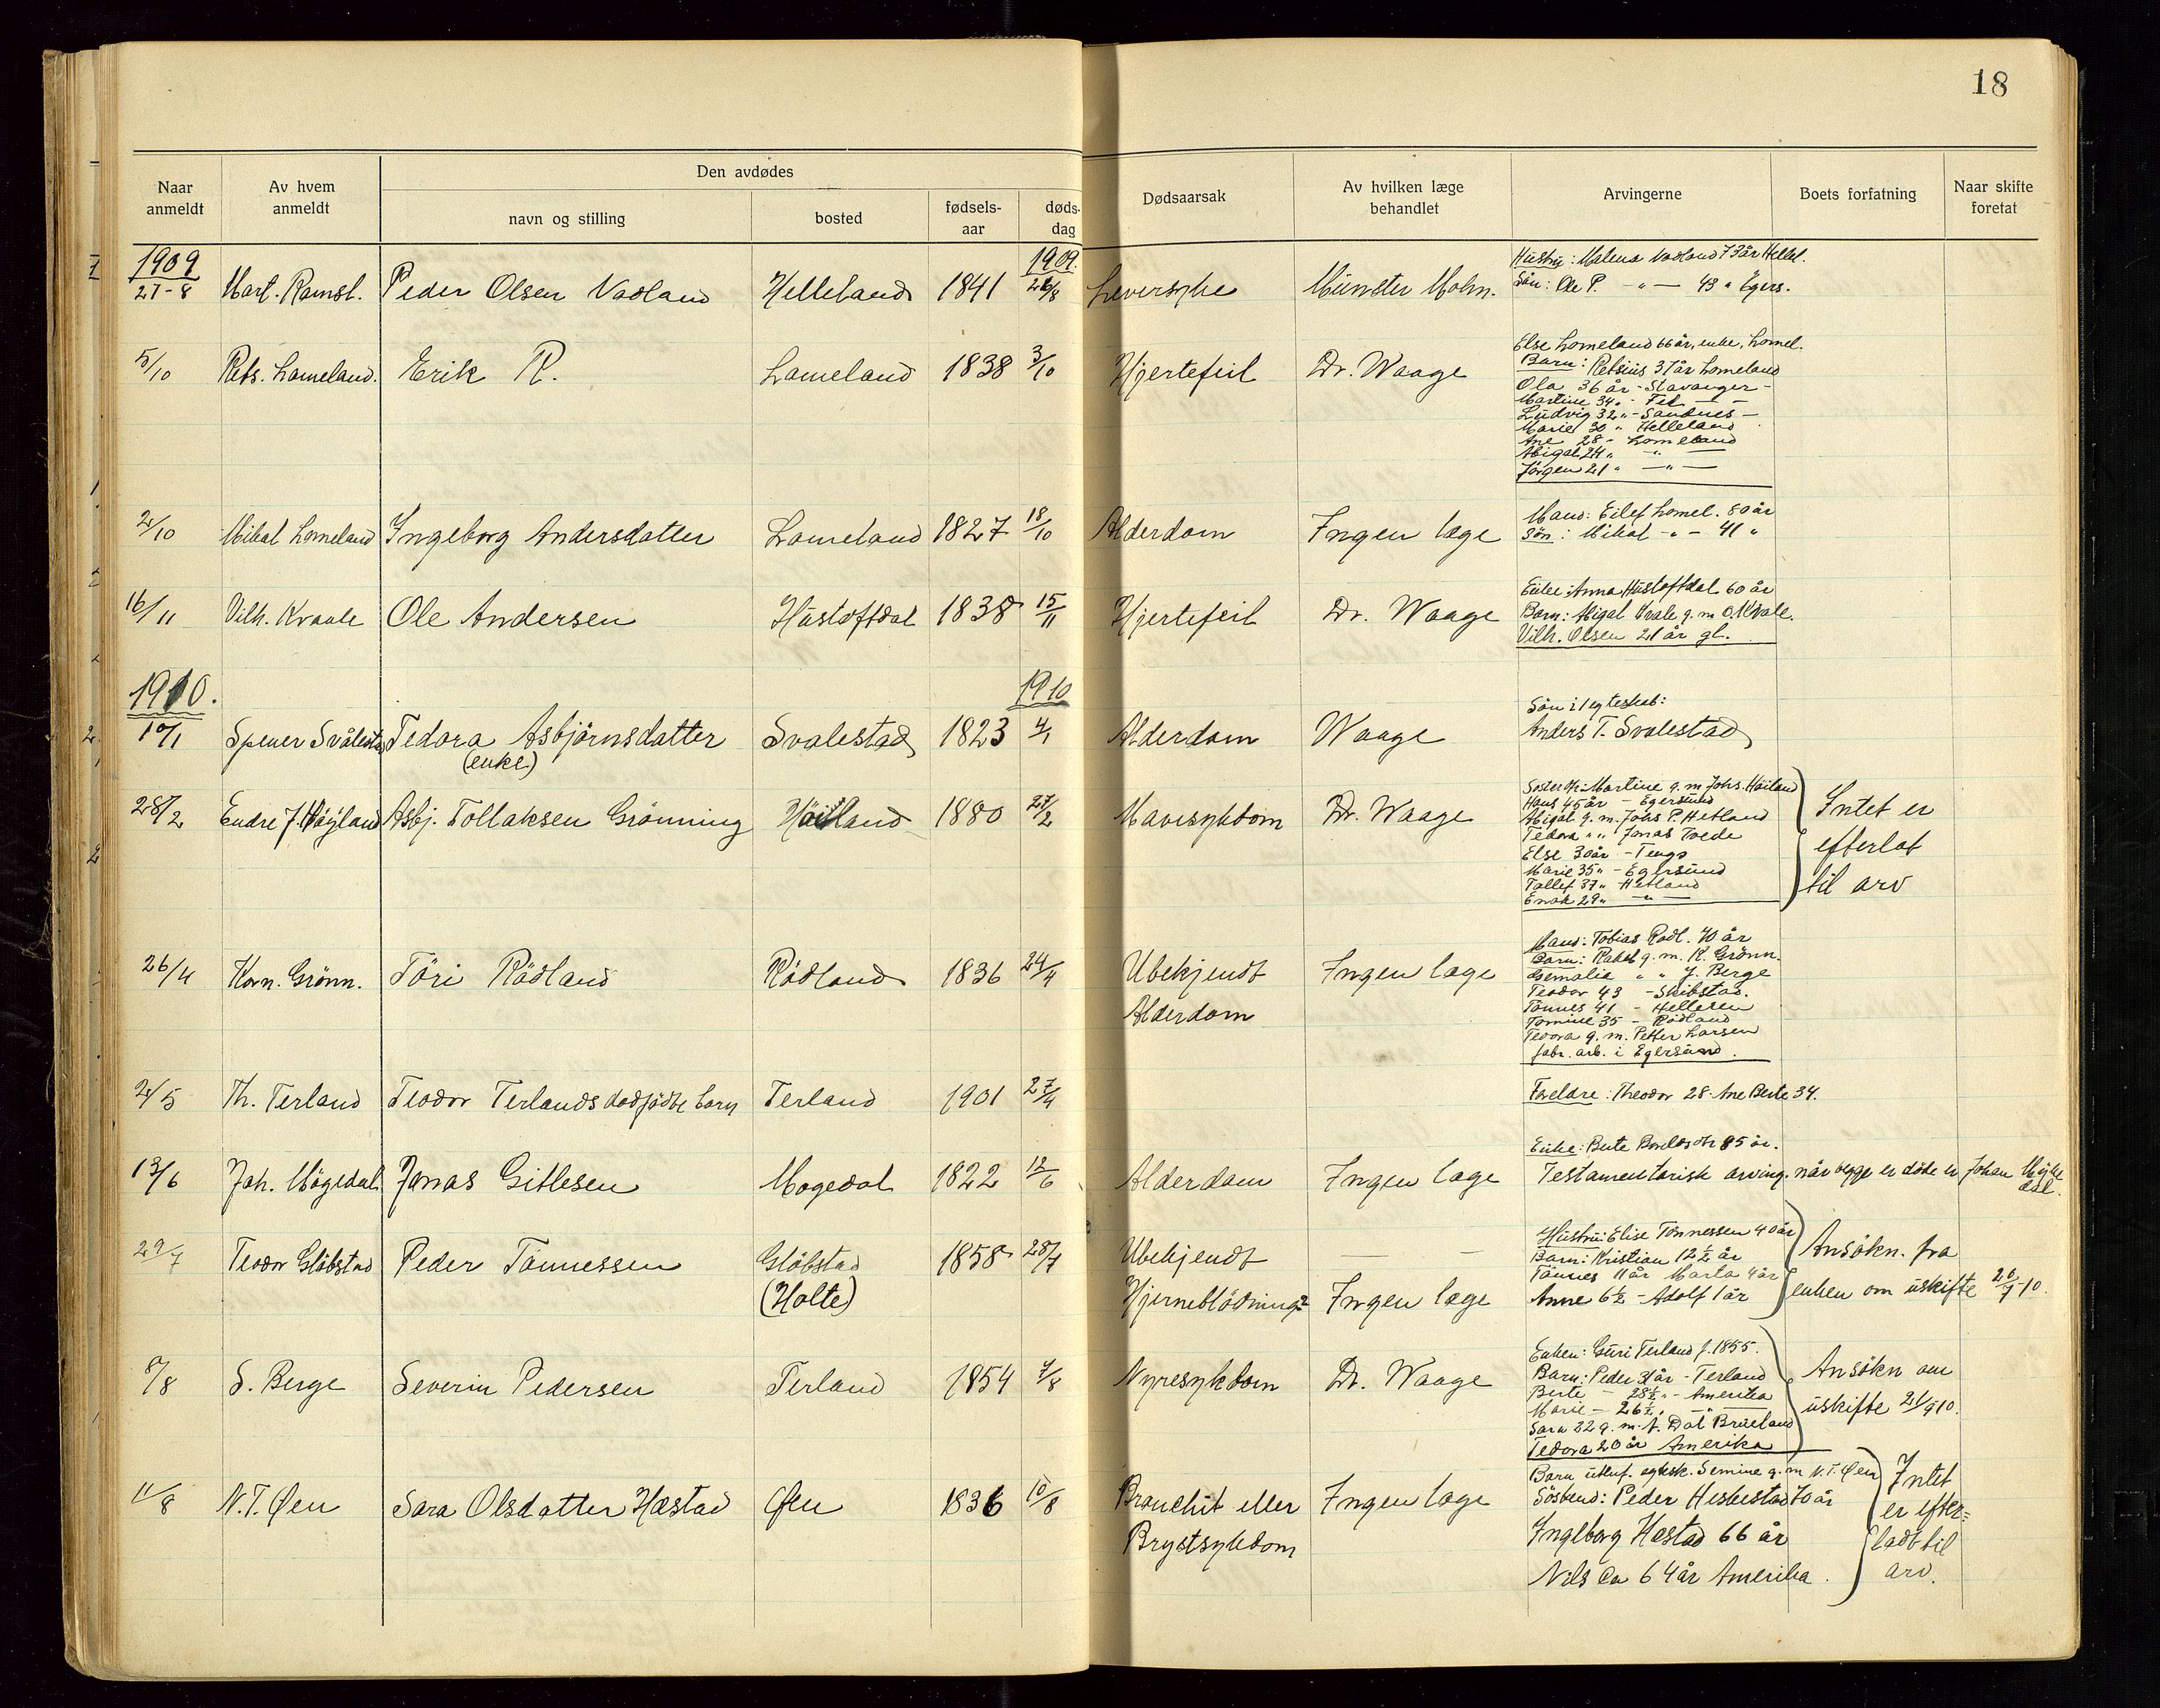 18
Naar anmeldt
Av hvem anmeldt
Den avdødes
navn og stilling
bosted
fødsels-aar
døds-dag
Dødsaarsak
Av hvilken læge behandlet
Arvingerne
Boets forfatning
Naar skifte foretat
1909
1909.
27-8 Mart. Ramsl. Peder Olsen Vadland Helleland 1841 26/8 Leversyke Münster Mohn.
Hustru: Malena Vadland 73 år Hellel.
Sön: Ole P. -"- 43 " Egers.
5/10 Rets. Lomeland. Erik R. Lomeland 1838 3/10 Hjertefeil Dr. Waage
Else Lomeland 66 år, enke, Lomel.
Barn: Retsius 37 år Lomeland
Ola 36 år - Stavanger -
Martine 34 " - Fed - -
Ludvig 32 " - Sandnes -
Marie 30 " Helleland
Ane 28 - Lomeland
Abigal 24 " -"-
Jörgen 21 " -"-
2/10 Mikal Lomeland Ingeborg Andersdatter Lomeland 1827 18/10 Alderdom Ingen læge
Mand: Eilef Lomel. 80 år
Sön: Mikal -"- 41 "
16/11 Vilh. Kvaale Ole Andersen Hustoftdal 1838 15/11 Hjertefeil Dr. Waage
Enke: Anna Hustoftdal 60 år
Barn: Abigal Kvale g. m O. Kvale.
Vilh. Olsen 21 år gl.
1910.
1910
10/1 Spener Svålestad Tedora Asbjörnsdatter Svalestad 1823 4/1 Alderdom Waage
(enke)
Sön i 1 egteskab:
Anders T. Svalestad
28/2 Endre J. Höyland Asbj. Tollaksen Grönning Höiland 1880 27/2 Mavesykdom Dr. Waage
Martine g. m Johs. Höiland
Hans 45 år - Egersund
Abigal g. m. Johs P. Hetland
Tedora " " Jonas Tvede
Else 30 år - Tengs
Marie 35 " - Egersund
Tollef 37 " Hetland
Enok 29 " -"-
Intet er
efterlat
til arv
26/4 Korn. Grönn. Töri Rödland Rödland 1836 24/4 Ubekjendt Ingen læge
Alderdom
Mand: Tobias Rödl. 70 år
Barn: Rakel g. m. K. Grönn.
" " J. Berge
Teodor 43 - Skibstad.
Tönnes 41 - Helleren
Tomine 35 - Rödland
Teodora g. m. Petter Larsen
fabr. arb. i Egersund.
2/5 Th. Terland Teodor Terlands dödfödte barn Terland 1901 27/4
Foreldre: Theodor 28. Ane Berte 34.
13/6 Joh. Mögedal Jonas Gitlesen Mogedal 1822 12/6 Alderdom Ingen læge
Enke: Berte 85 år.
Testamentarisk arving. når begge er döde er Johan Mykedal.
29/7 Teodor Glöbstad Peder Tönnessen Glöbstad 1858 28/7 Ubekjendt — -
(Holte) Hjerneblödning? Ingen læge
Hustru: Elise Tönnessen 40 år
Barn: Kristian 12½ år
Tönnes 11 år Marta 9 år
Anne 6½ - Adolf 1 år
Ansökn. fra
enken om uskifte 20/9-10.
8/8 S. Berge Severin Pedersen Terland 1854 7/8 Nyresykdom Dr. Waage
Enken: Guri Terland f. 1855.
Barn: Peder 31 år - Terland
Berte - 28½ " - Amerika
Marie - 26½ " -"-
Sara 22 g. m. A. Dal Brüeland
Tedora 20 år Amerika
Ansökn om
uskifte 21/9 10.
11/8 N. T. Øen Sara Olsdatter Hæstad Øen 1836 10/8 Bronchit eller Ingen læge
Brystsykdom
Barn utenf. egtesk. Semine g. m N. T. Øen
Söskend: Peder Heskestad 70 år
Ingeborg Hæstad 66 år
Nils Ca 64 år Amerika.
Intet
er efter=
ladt til
arv.